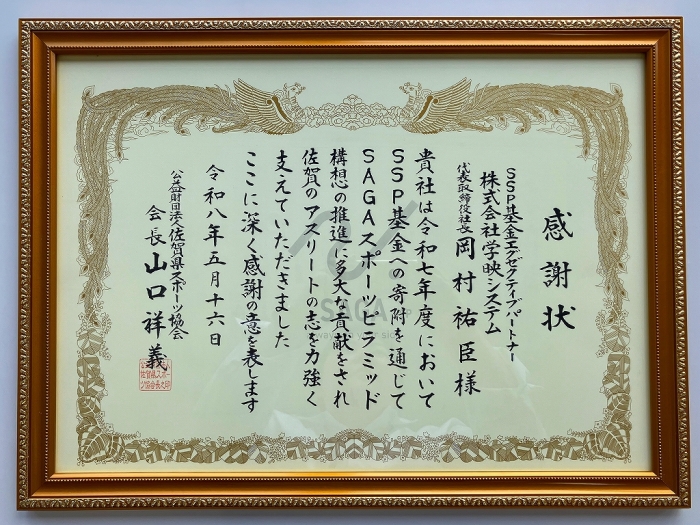 感謝状
SSP基金エグゼクティブパートナー
株式会社学映システム
代表取締役社長 岡村祐臣様
貴社は令和七年度において
SSP基金への寄附を通じて
SAGAスポーツピラミッド
構想の推進に多大な貢献をされ
佐賀のアスリートの志を力強く
支えていただきました
ここに深く感謝の意を表します
令和八年五月十六日
公益財団法人佐賀県スポーツ協会
会長 山口祥義
SAGA